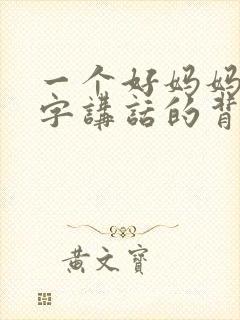 一个好妈妈
字講話的背
黃文寶